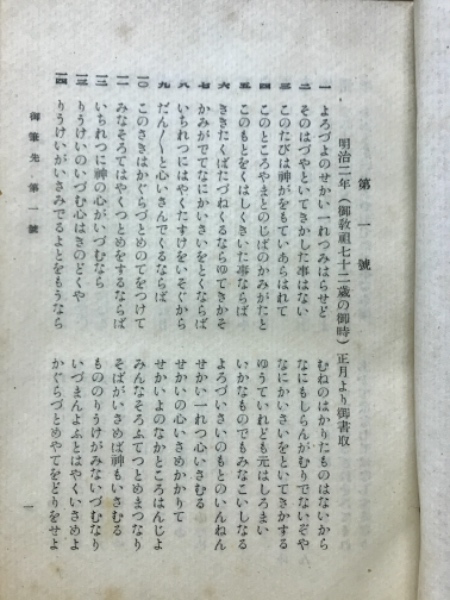 第一號
明治二年（御敎祖七十二歳の御時）正月より御書取
一 よろづよのせかい一れつみはらせど むねのはかりたものはないから
二 そのはづやといてきかした事はない なにもしらんがむりでないぞや
三 このたびは神がをもていあらはれて なにかいさいをといてきかする
四 このところやまとのじばのかみがたと ゆうていれども元はしろまい
五 このもとをくはしくきいた事ならば いかなものでもみなこいしなる
六 ききたくばたづねくるならゆてきかそ よろづいさいのもとのいんねん
七 かみがでてなにかいさいをとくならば せかい一れつ心いさむる
八 いちれつにはやくたすけをいそぐから せかいの心いさめかかりて
九 だん〱と心いさんでくるならば せかいよのなかところはんじよ
一〇 このさきはかぐらづとめのてをつけて みんなそろふてつとめまつなり
一一 みなそろてはやくつとめをするならば そばがいさめば神もいさむる
一二 いちれつに神の心がいづむなら もののりうけがみないづむなり
一三 りうけいのいづむ心はきのどくや いづまんよふとはやくいさめよ
一四 りうけいがいさみでるよとをもうなら かぐらづとめやてをどりをせよ
御筆先 第一號
一